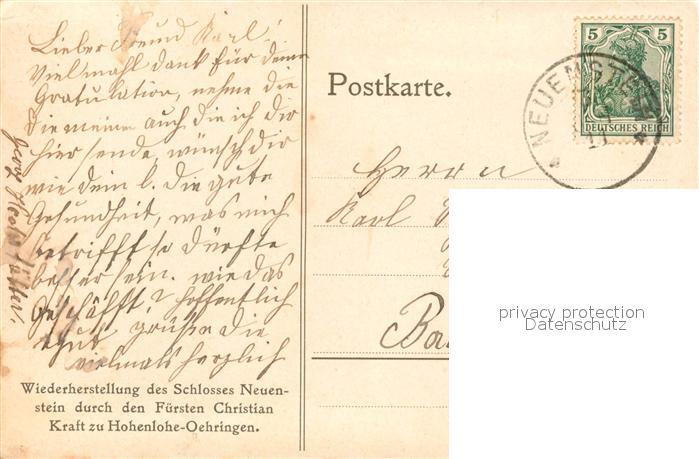 Lieber Freund Karl!
Viel mahl dank für deine
Gratulation, nehme die
die meine auch die ich dir
hier sende, wünsch dir
wie dem l. die gute
Gesundheit, was mich
betrifft so dürfte
besser sein. wie das
Geschäfft? hoffentlich
gut, grüße die
vielmals herzlich
Wiederherstellung des Schlosses Neuen-
stein durch den Fürsten Christian
Kraft zu Hohenlohe-Oehringen.
Postkarte.
5 5
DEUTSCHES REICH
NEUENSTEIN
11
Herrn
Karl
Ba
privacy protection
Datenschutz